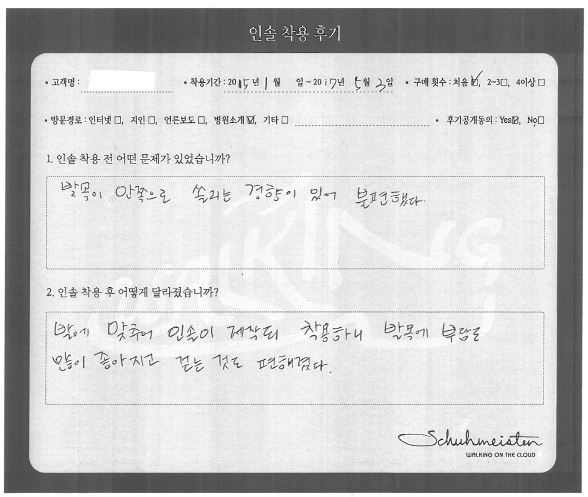 인솔 착용 후기
• 고객명 : • 착용기간 : 2015년 1월 일 ~ 2017년 5월 2일 • 구매 횟수 : 처음☑, 2~3□, 4이상□
• 방문경로 : 인터넷□, 지인□, 언론보도□, 병원소개☑, 기타□ • 후기공개동의 : Yes☑, No□
1. 인솔 착용 전 어떤 문제가 있었습니까?
발목이 안쪽으로 쏠리는 경향이 있어 불편했다.
WALKING
2. 인솔 착용 후 어떻게 달라졌습니까?
발에 맞추어 인솔이 제작되 착용하니 발목에 부담도
많이 좋아지고 걷는 것도 편해졌다.
Schuhmeister
WALKING ON THE CLOUD